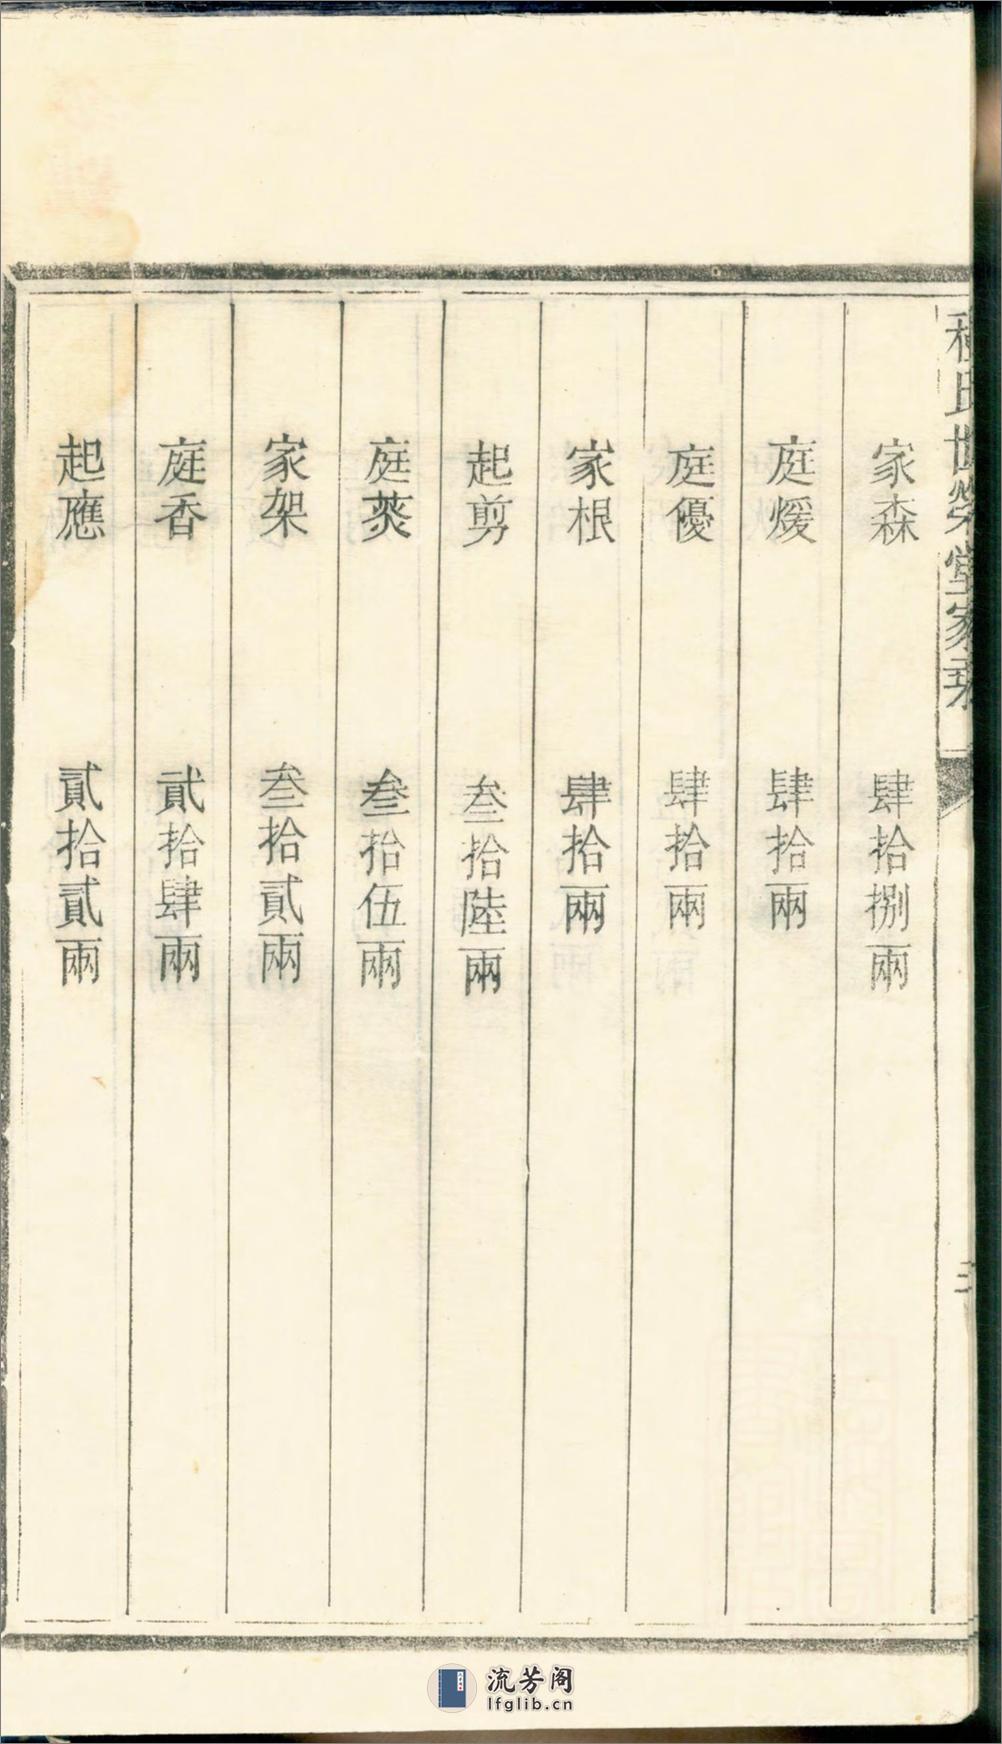 程氏世榮堂家乘
家森 肆拾捌兩
庭煖 肆拾兩
庭優 肆拾兩
家根 肆拾兩
起剪 叁拾陸兩
庭葖 叁拾伍兩
家架 叁拾貳兩
庭香 貳拾肆兩
起應 貳拾貳兩
流芳阁
lfglib.cn